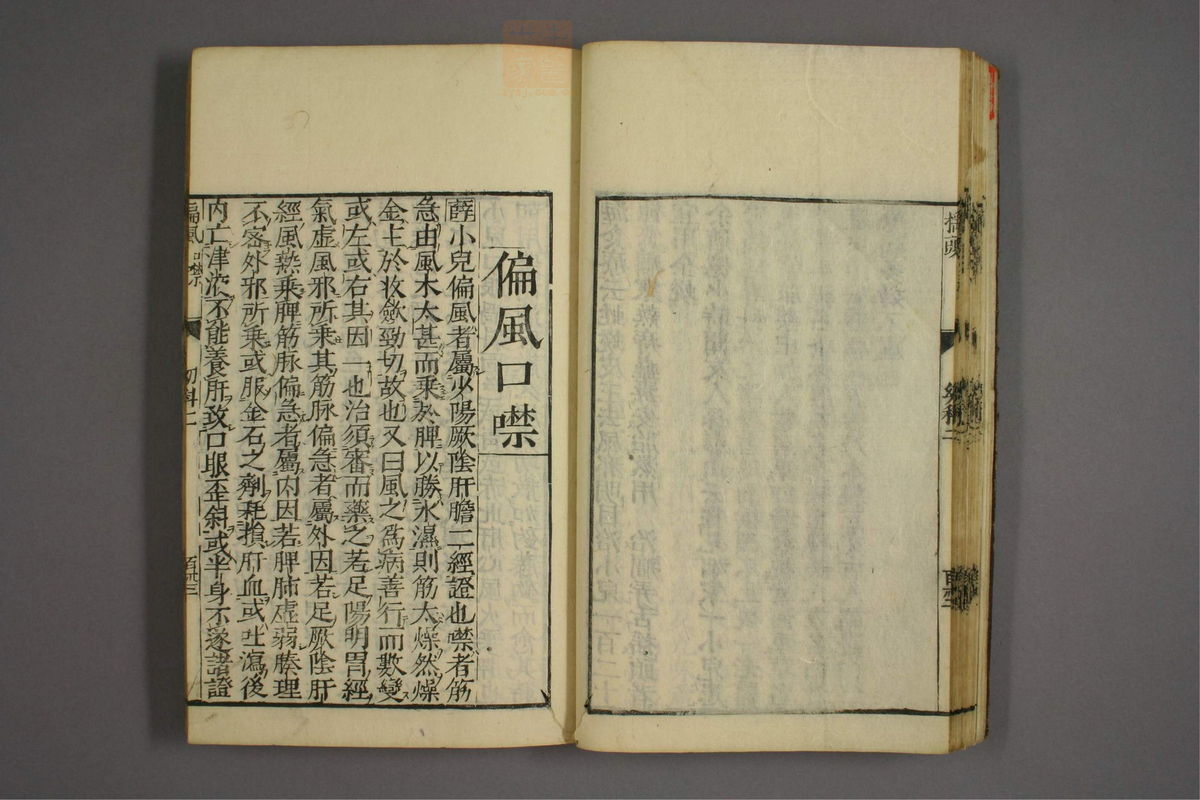 搖頭
幼科二
偏風口噤
薛小兒偏風者屬少陽厥陰肝膽二經證也噤者筋
急由風木太甚而乘於脾以勝水濕則筋太燥然燥
金主於收斂勁切故也又曰風之爲病善行而數變
或左或右其因一也治須審而藥之若足陽明胃經
氣虛風邪所乘其筋脉偏急者屬外因若足厥陰肝
經風熱乘脾筋脉偏急者屬内因若脾肺虛弱腠理
不密外邪所乘或服金石之劑耗損肝血或吐瀉後
内亡津液不能養肝致口眼歪斜或半身不遂諸證
偏風口噤
幼科二